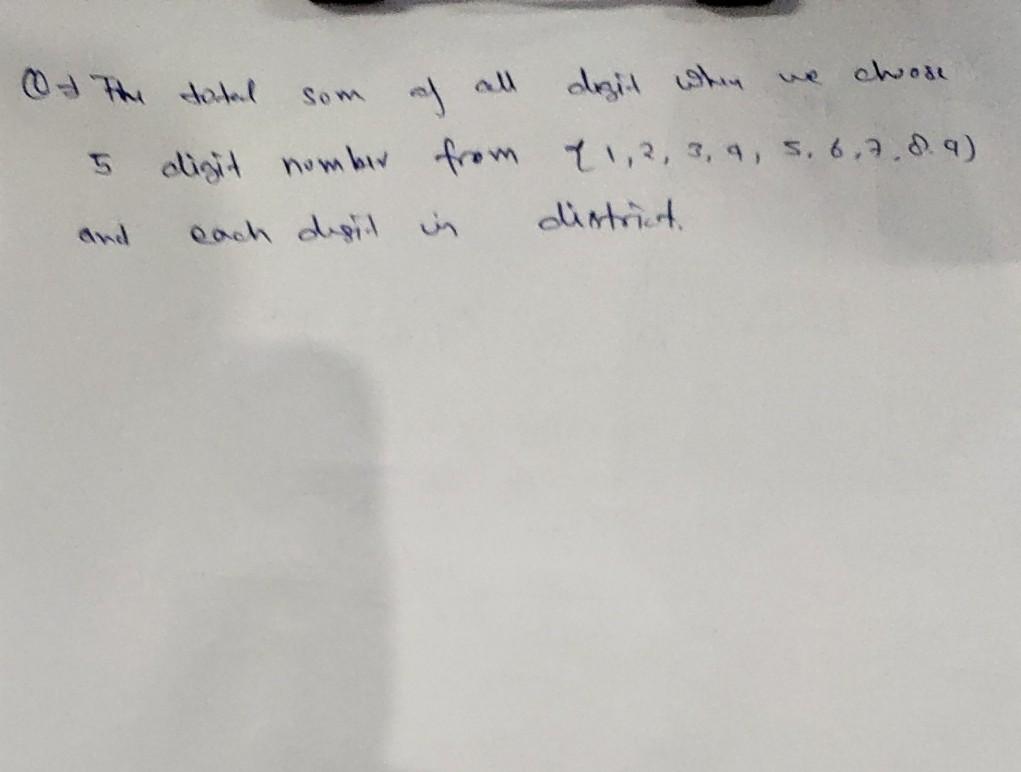 Q⇒ The total som of all digit when we choose
5 digit nomber from {1, 2, 3, 4, 5, 6, 7, 8. 9)
and each digit is district.